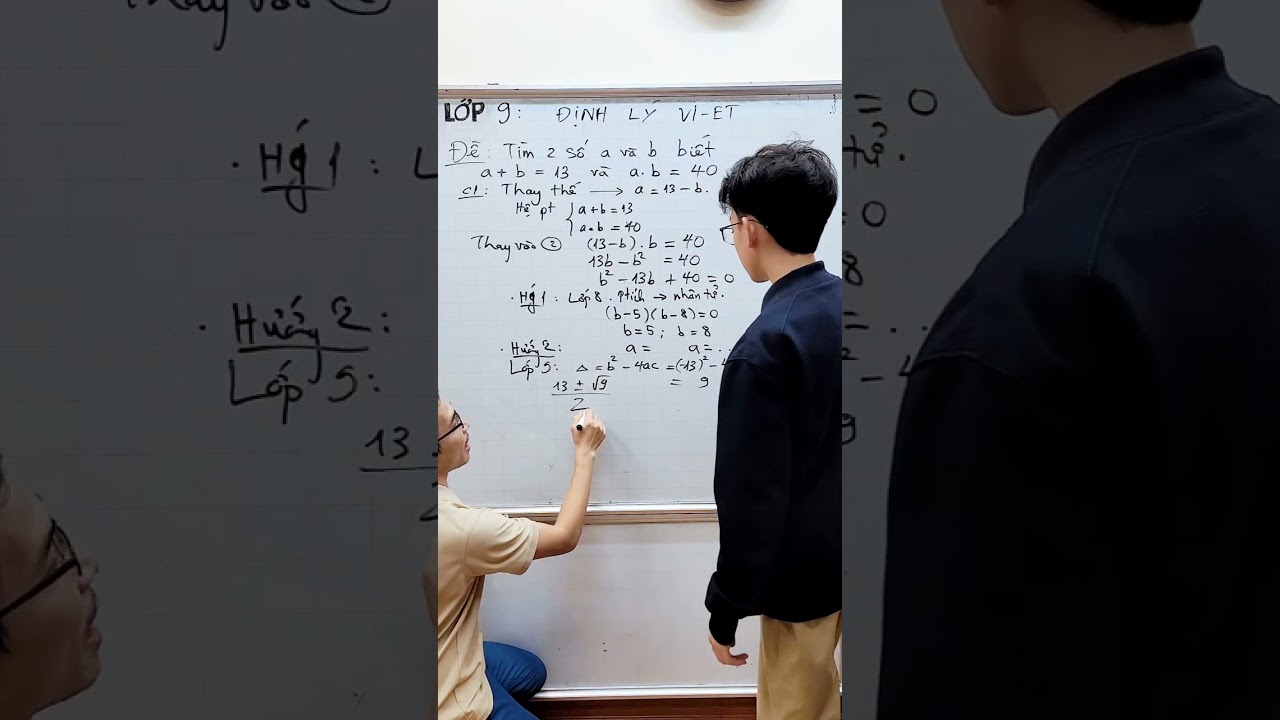 LỚP 9: ĐỊNH LÝ VI-ET
Đề: Tìm 2 số a và b biết
a + b = 13 và a.b = 40
C1: Thay thế → a = 13 - b.
Hệ pt { a + b = 13
a.b = 40
Thay vào ② (13-b).b = 40
13b - b² = 40
b² - 13b + 40 = 0
. Hg 1: Lớp 8. Ptích → nhân tử.
(b-5)(b-8)=0
b=5; b=8
a= a=...
. Hướng 2:
Lớp 5: Δ = b² - 4ac = (-13)² -
= 9
13 ± √9
2